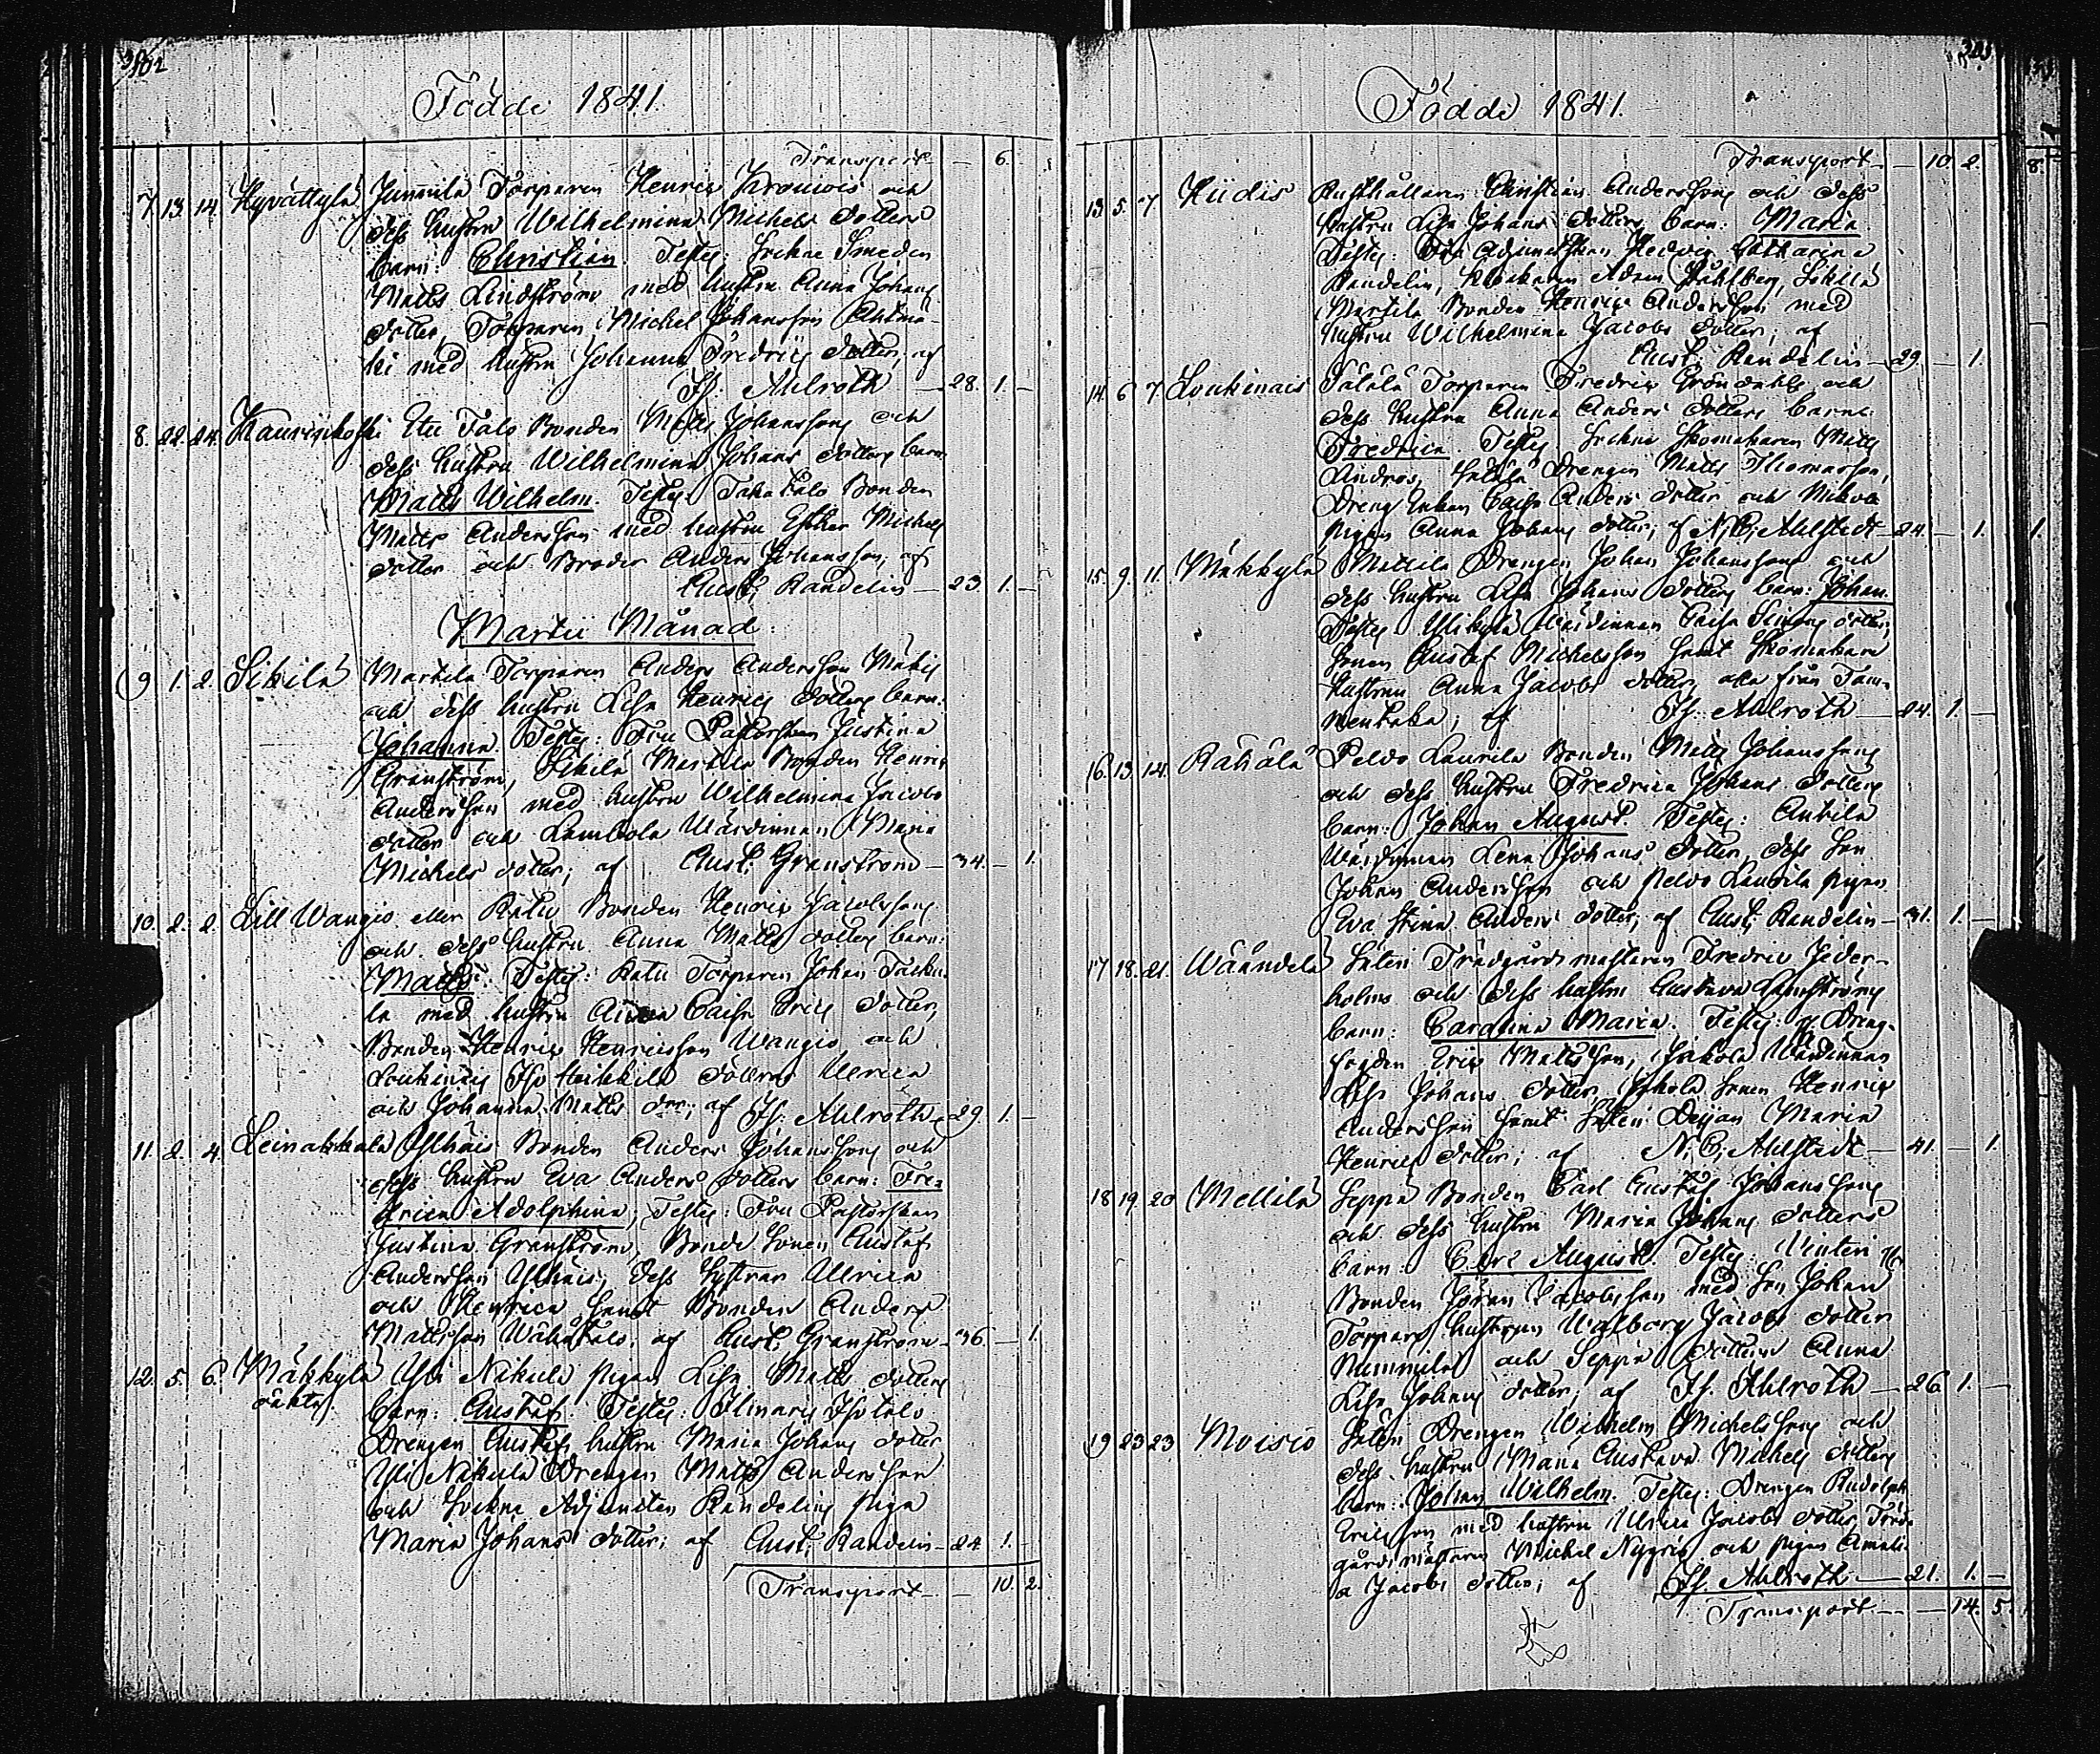 Födde 1841.
Transport — 6.
7. 13. 14. Hyvättylä Junnila Torparen Henric Kronwis och
dess hustru Wilhelmina Michels dotters
barn: Christian. Testes: Sockne Smeden
Matts Lindström med hustru Anna Johans
dotter, Torparen Michel Johansson
med hustru Johanna Fredrics dotter; af
Js. Ahlroth — 28. 1. —
8. 22. 24. Kaurinkoski Etu Talo Bonden Matts Johanssons och
dess hustru Wilhelmina Johans dotters barn
Matts Wilhelm. Testes: Taka talo Bonden
Matts Andersson med hustru Esther Michels
dotter och Broder Anders Johansson; af
Gust. Randelin — 23. 1. —
Martii Månad
9. 1. 2. Sikilä Martila Torparen Anders Andersson Mäkis
och dess hustru Lisa Henrics dotters barn:
Johanna. Testes: Fru Pastorskan Justina
Granström, Sikilä Martila Bonden Henric
Andersson med hustru Wilhelmina Jacobs
dotter och Lambola Wärdinnan Maria
Michels dotter; af Gust. Granström — 34. — 1.
10. 2. 2. Lill Wangio eller Ratu Bonden Henric Jacobssons
och dess hustru Anna Matts dotters barn:
Matts. Testes: Ratu Torparen Johan
med hustru Caisa Erics dotter,
Bonden Henric Henricsson Wangio och
Loukinais Iso Heikkilä döttrar Ulrica
och Johanna Matts dr; af Js. Ahlroth — 29. 1. —
11. 2. 4. Leinakkala Ylhäis Bonden Anders Johanssons och
dess hustru Eva Anders dotters barn: Fred-
rica Adolphina; Testes: Fru Pastorskan
Justina Granström, Bonde Sonen Gustaf
Andersson Ylhäis, dess Systrar Ulrica
och Henrica samt Bonden Anders
Mattsson Wähätalo; af Gust. Granström — 36. — 1.
12. 5. 6. Mäkkylä Yli Nikula pigan Lisa Matts dotters
oäkta barn: Gustaf. Testes: Ilmaris Iso talo
Drengen Gustafs hustru Maria Johans dotter
Yli Nikula Drengen Matts Andersson
och Sockne Adjuncten Randelins piga
Maria Johans dotter; af Gust. Randelin — 24. 1. —
Transport — 10. 2.
Födde 1841.
Transport — 10. 2.
13. 5. 7. Hiidis Rusthållaren Christian Anderssons och dess
hustru Lisa Johans dotters barn: Maria.
Testes: Fru Adjunctskan Hedvig Catharina
Randelin, Klockaren Adam Ståhlberg, Sikilä
Martila Bonden Henric Andersson med
hustru Wilhelmina Jacobs dotter; af
Gust. Randelin — 29. — 1.
14. 6. 7. Loukinais Sälälä Torparen Fredric Gröndahls och
dess hustru Anna Anders dotters barn:
Fredrica. Testes: Sockne Skomakaren Matts
Lindros, Drengen Matts Thomasson,
Dreng Enkan Caisa Anders dotter och
pigan Anna Johans dotter; af N. C. Ahlstedt — 24. — 1.
15. 9. 11. Mäkkylä Mattila Drengen Johan Johanssons och
dess hustru Lisa Johans dotters barn: Johan.
Testes: Wärdinnan Caisa Simons dotter,
Sonen Gustaf Michelsson samt Skomakare
hustrun Anna Jacobs dotter, alla från Tam-
; af Js. Ahlroth — 24. 1. —
16. 13. 14. Rähälä Peldo Laurila Bonden Matts Johanssons
och dess hustru Fredrica Johans dotters
barn: Johan August. Testes: Anttila
Wärdinnan Lena Johans dotter, dess Son
Johan Andersson och Peldo Laurila pigan
Eva Stina Anders dotter; af Gust. Randelin — 31. 1. —
17. 18. 21. Wäändelä Säteri Trädgårdsmästaren Fredric Jeder-
holms och dess hustru Gustava Landströms
barn: Carolina Maria. Testes: Dreng-
fogden Eric Mattsson, Wärdinnan
Lisa Johans dotter, Sonen Henric
Andersson samt Säteri Dejan Maria
Henrics dotter; af N. C. Ahlstedt — 41. — 1.
18. 19. 20. Mellilä Seppä Bonden Carl Gustaf Johanssons
och dess hustru Maria Johans dotters
barn: Carl August. Testes:
Bonden Johan Jacobsson med Son Johan
Torpare hustrun Walborg Jacobs dotter
Nummila och Seppä dottren Anna
Lisa Johans dotter; af Js. Ahlroth — 26. 1. —
19. 23. 23. Moisio Säteri Drengen Wilhelm Michelssons och
dess hustru Maria Gustava Michels dotters
barn: Johan Wilhelm. Testes: Drengen Rudolph
Ericsson med hustru Ulrica Jacobs dotter, Träd-
gårdsmästaren Michel Nygrén och pigan Amali-
a Jacobs dotter; af Js. Ahlroth — 21. 1. —
Transport — 14. 5.